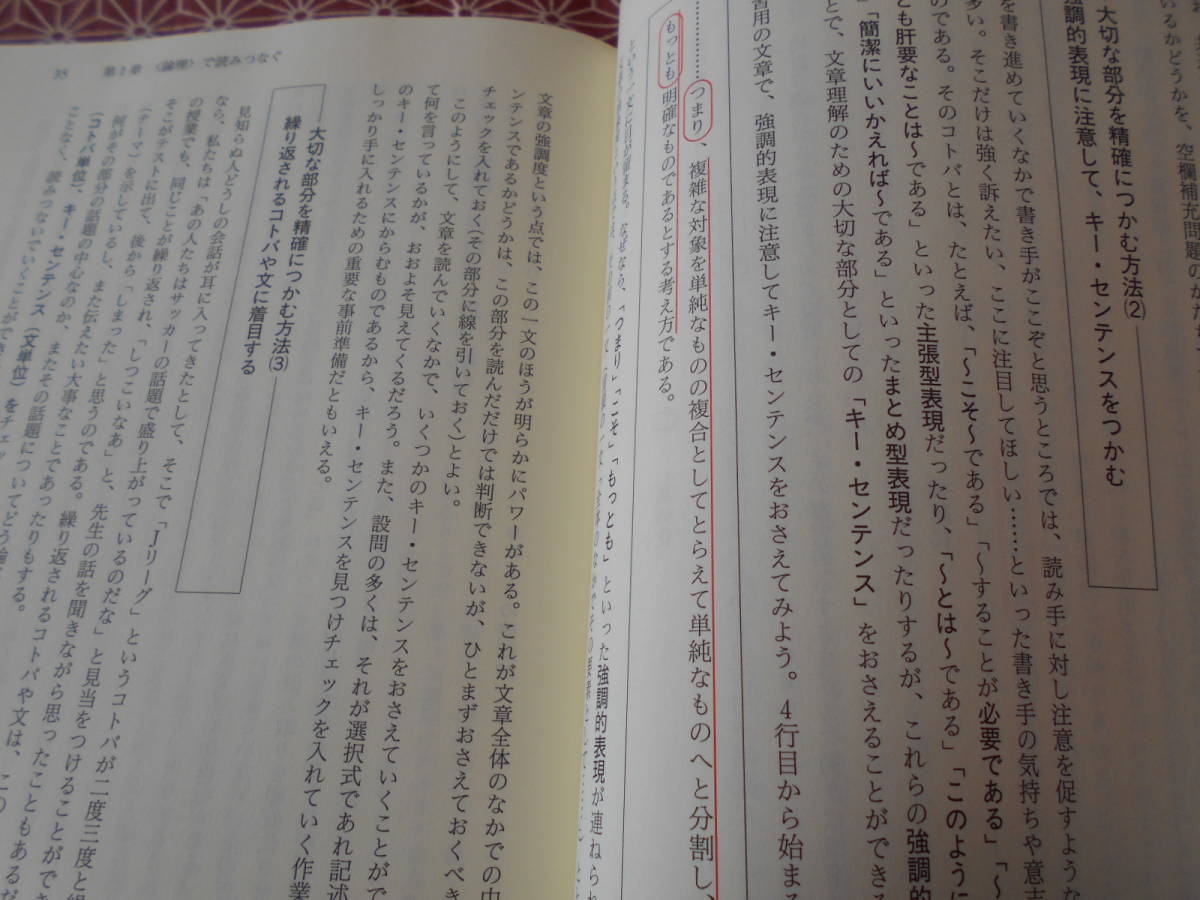 いるかどうかを、空欄補充問題のかたち
大切な部分を精確につかむ方法②
強調的表現に注意して、キー・センテンスをつかむ
を書き進めていくなかで書き手がここぞと思うところでは、読み手に対し注意を促すような
多い。そこだけは強く訴えたい、ここに注目してほしい……といった書き手の気持ちや意志
のである。そのコトバとは、たとえば、「〜こそ〜である」「〜することが必要である」「〜
とも肝要なことは〜である」といった主張型表現だったり、「〜とは〜である」「このように
「簡潔にいいかえれば〜である」といったまとめ型表現だったりするが、これらの強調的
とで、文章理解のための大切な部分としての「キー・センテンス」をおさえることができる
習用の文章で、強調的表現に注意してキー・センテンスをおさえてみよう。4行目から始まる
つまり、複雑な対象を単純なものの複合としてとらえて単純なものへと分割し、
もっとも明確なものであるとする考え方である。
という一文に目が留まる。なぜなら、「つまり」「こそ」「もっとも」といった強調的表現が連ねられ
文章の強調度という点では、この一文のほうが明らかにパワーがある。これが文章全体のなかでの中
ンテンスであるかどうかは、この部分を読んだだけでは判断できないが、ひとまずおさえておくべき
チェックを入れておく(その部分に線を引いておく)とよい。
このようにして、文章を読んでいくなかで、いくつかのキー・センテンスをおさえていくことがで
て何を言っているかが、おおよそ見えてくるだろう。また、設問の多くは、それが選択式であれ記述
のキー・センテンスにからむものであるから、キー・センテンスを見つけチェックを入れていく作業
しっかり手に入れるための重要な事前準備だともいえる。
35 第1章 〈論理〉で読みつなぐ
大切な部分を精確につかむ方法③
繰り返されるコトバや文に着目する
見知らぬ人どうしの会話が耳に入ってきたとして、そこで「Jリーグ」というコトバが二度三度と繰
なら、私たちは「あの人たちはサッカーの話題で盛り上がっているのだな」と見当をつけることがで
の授業でも、同じことが繰り返され、「しつこいなあ」と、先生の話を聞きながら思ったこともあるだ
そこがテストに出て、後から「しまった」と思うのである。繰り返されるコトバや文は、この
(テーマ)を示しているし、また伝えたい大事なことであったりもする。
何がその部分の話題の中心なのか、またその話題についてどう論
(コトバ単位)、キー・センテンス(文単位)をチェッ
ことなく、読みつないでいくことができ